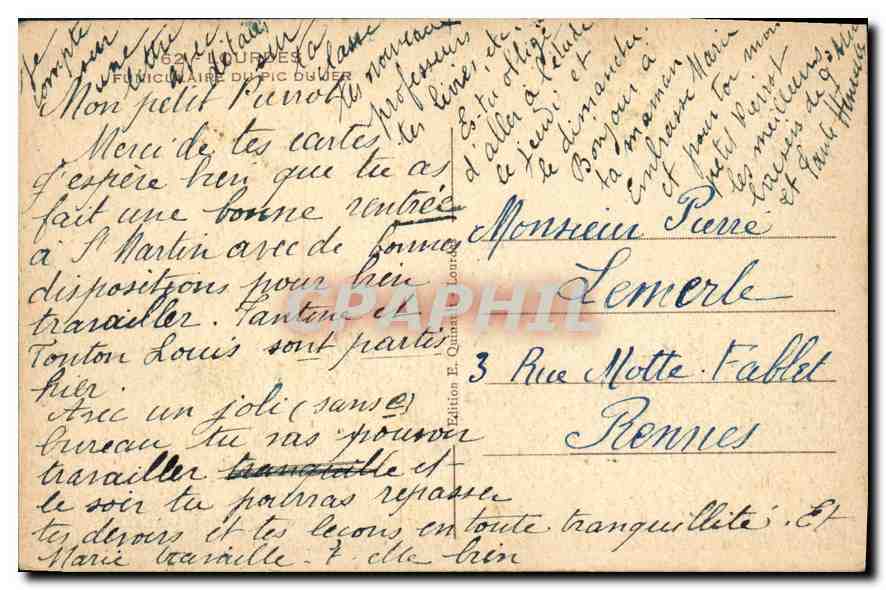 62 - LOURDES
FUNICULAIRE DU PIC DU JER
Mon petit Pierrot
Merci de tes cartes
J'espère bien que tu as
fait une bonne rentrée
à St Martin avec de bonnes
dispositions pour bien
travailler. Tantine et
Tonton Louis sont partis
hier.
Avec un joli (sans e)
bureau tu vas pouvoir
travailler tranquille et
le soir tu pourras repasser
tes devoirs et tes leçons en toute tranquillité. Et
Marie travaille-t-elle bien
Je
compte sur
une lettre
avec détails
sur la classe
tes nouveaux
professeurs
tes livres, etc.
Es-tu obligé
d'aller à l'étude
le jeudi et
le dimanche.
Bonjour à
ta maman
Embrasse Marie
et pour toi mon
petit Pierrot
les meilleurs
baisers de
et Tante
Edition E. Lourdes
Monsieur Pierre
Lemerle
3 Rue Motte-Fablet
Rennes
CPAPHIL